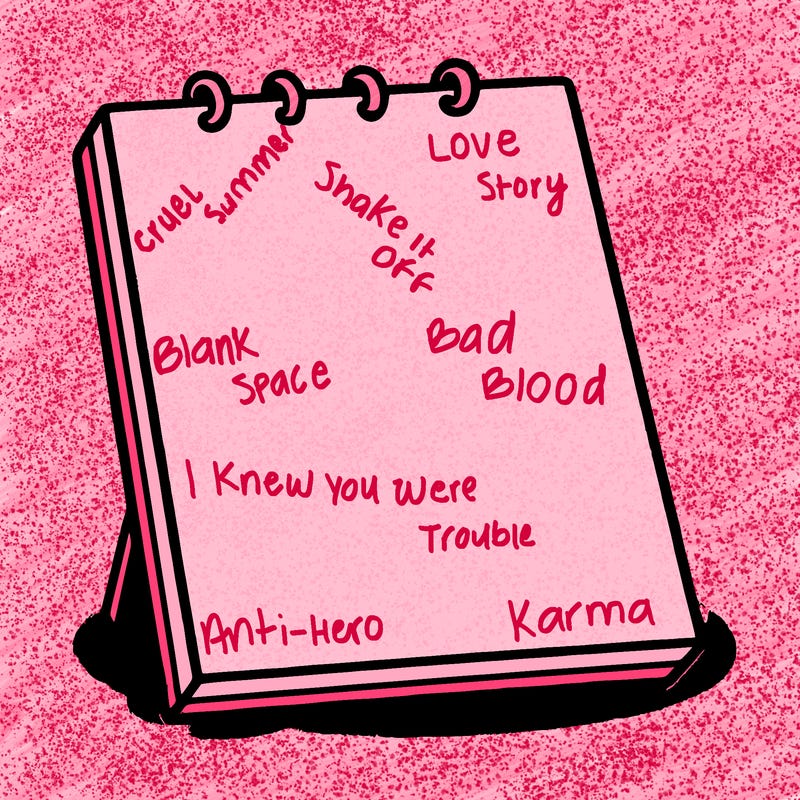 Cruel
Summer
Shake it
Off
Love
Story
Blank
Space
Bad
Blood
I Knew you were
Trouble
Anti-Hero
Karma